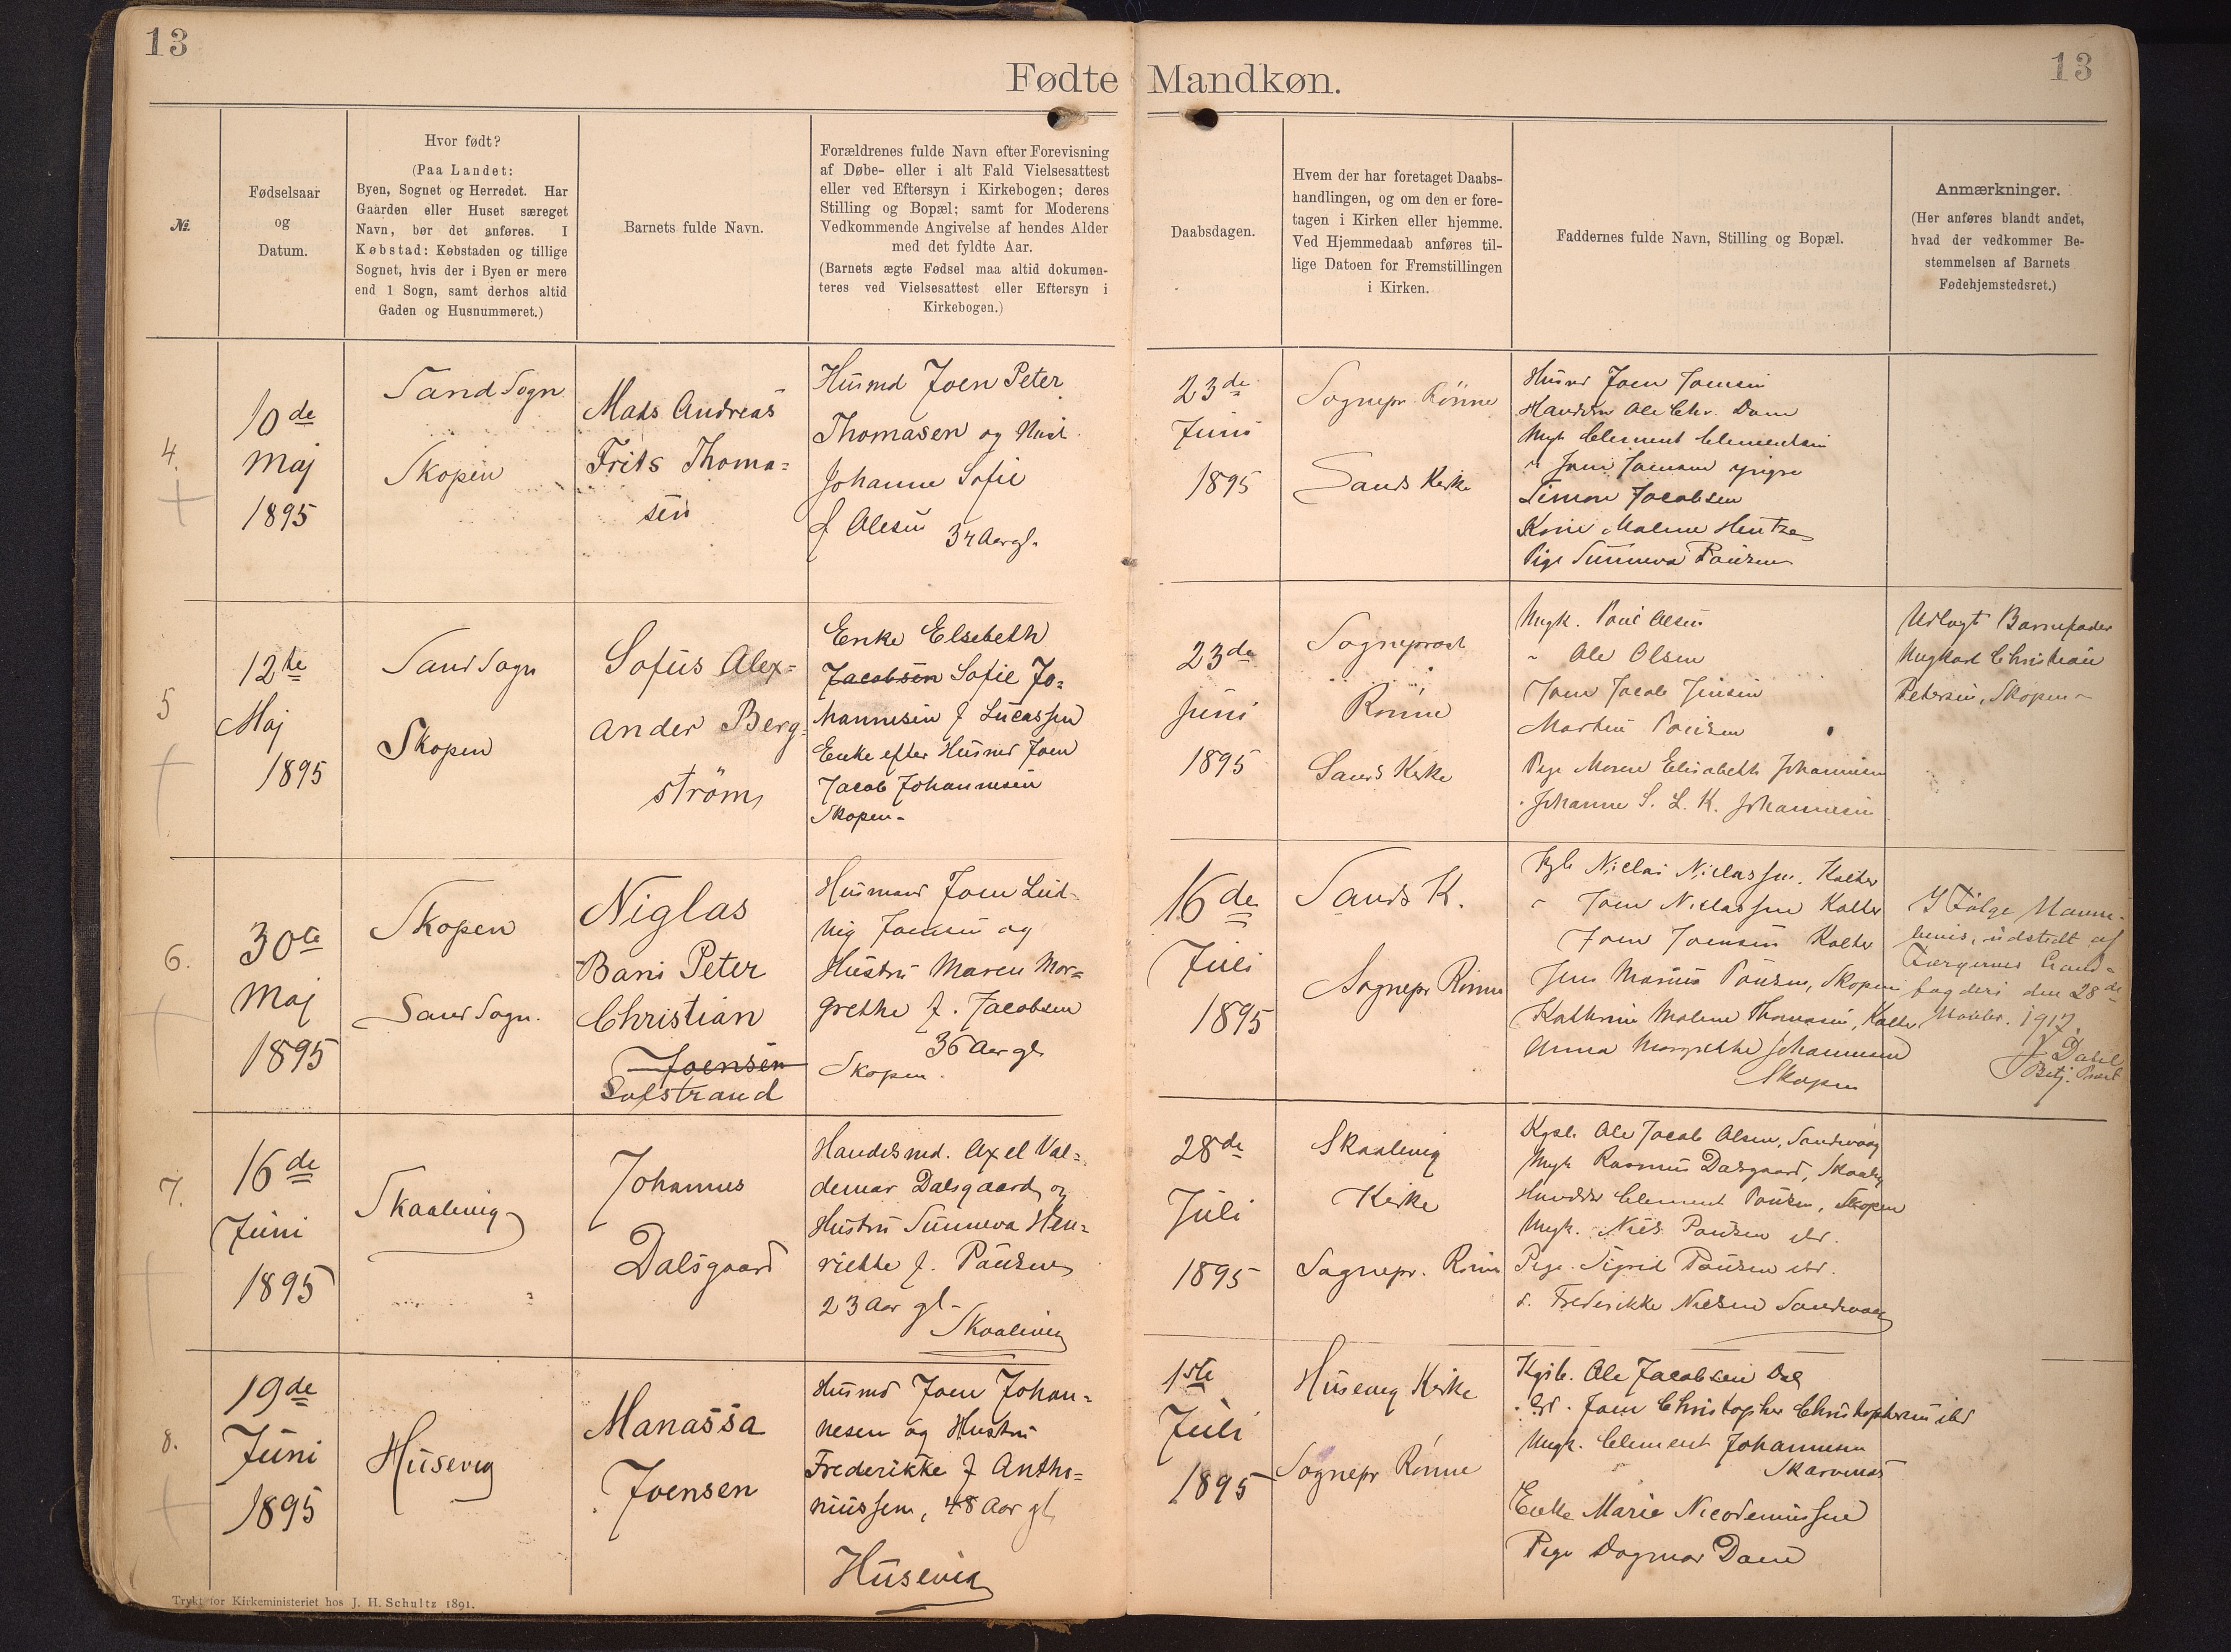 13
13
Fødte Mandkøn.
№.
Fødselsaar
og
Datum.
Hvor født?
(Paa Landet:
Byen, Sognet og Herredet. Har
Gaarden eller Huset særeget
Navn, bør det anføres. I
Købstad: Købstaden og tillige
Sognet, hvis der i Byen er mere
end 1 Sogn, samt derhos altid
Gaden og Husnummeret.)
Barnets fulde Navn.
Forældrenes fulde Navn efter Forevisning
af Døbe- eller i alt Fald Vielsesattest
eller ved Eftersyn i Kirkebogen; deres
Stilling og Bopæl; samt for Moderens
Vedkommende Angivelse af hendes Alder
med det fyldte Aar.
(Barnets ægte Fødsel maa altid dokumen-
teres ved Vielsesattest eller Eftersyn i
Kirkebogen.)
Daabsdagen.
Hvem der har foretaget Daabs-
handlingen, og om den er fore-
tagen i Kirken eller hjemme.
Ved Hjemmedaab anføres til-
lige Datoen for Fremstillingen
i Kirken.
Faddernes fulde Navn, Stilling og Bopæl.
Anmærkninger.
(Her anføres blandt andet,
hvad der vedkommer Be-
stemmelsen af Barnets
Fødehjemstedsret.)
4.
10de
Maj
1895
Sand Sogn
Skopen
Mads Andreas
Frits Thoma-
sen
Husmd Joen Peter
Thomasen og Hust.
Johanne Sofie
f Olesen 34 Aar gl.
23de
Juni
1895
Sognepr. Rönne
Sands Kirke
Husmd Joen Joensen
Handelsm Ole Chr. Dam
Ungk Clement Clementsen
" Joen Joensen yngre
Simon Jacobsen
Kone Malene Hentze
Pige Sunneva Poulsen
5
12te
Maj
1895
Sand Sogn
Skopen
Sofus Alex-
ander Berg-
ström
Enke Elsebeth
Jacobsen Sofie Jo-
hannesen f Lucassen
Enke efter Husmd Joen
Jacob Johannesen
Skopen-
23de
Juni
1895
Sogneprest
Rönne
Sands Kirke
Ungk. Poul Olsen
" Ole Olsen
Joen Jacob Jensen
Morten Poulsen
Pige Maren Elisabeth Johannesen
" Johanne S. L. K. Johannesen
Udlagt Barnefader
Ungkarl Christian
Petersen, Skopen-
6.
30te
Maj
1895
Skopen
Sand Sogn.
Niglas
Bani Peter
Christian
Joensen
Sofstrand
Husmand Joen Lud-
vig Joensen og
Hustru Maren Mor-
grethe f. Jacobsen
36 Aar gl.
Skopen.
16de
Juli
1895
Sands K.
Sognepr Rönne
Niclas Niclassen, Kolter
" Joen Niclassen Kolter
Joen Joensen Kolter
Jens Marius Poulsen, Skopen
Kathrine Malene Thomasen, Kolter
Anna Morgrethe Johannesen
Skopen
I Følge Navne-
bevis, udstedt af
Færøernes Land-
fogderi den 28de
Novbr. 1917.
J Dahl
Betj. Præst
7.
16de
Juni
1895
Skaalevig
Johannes
Dalsgaard
Handelsmd. Axel Val-
demar Dalsgaard og
Hustru Sunneva Hen-
riette f. Poulsen
23 Aar gl-
Skaalevig
28de
Juli
1895
Skaalevig
Kirke
Sognepr. Rönne
Kgsb. Ole Jacob Olsen, Sandvaag
Ungk Rasmus Dalsgaard, Skaalev
Handelsm Clement Poulsen, Skopen
Ungk. Niels Poulsen ibd.
Pige Sigrid Poulsen ibd.
d. Frederikke Nielsen Sandvaag
8.
19de
Juni
1895
Husevig
Manassa
Joensen
Husmd Joen Johan-
nesen og Hustru
Frederikke f Antho-
niussen, 48 Aar gl
Husevig
1ste
Juli
1895
Husevig Kirke
Sognepr Rönne
Kgsb. Ole Jacobsen Dal
Joen Christopher Christophersen ibd
Ungk. Clement Johannesen
Skarvenæs
Enke Marie Nicodemussen
Pige Dagmar Dam
Trykt for Kirkeministeriet hos J. H. Schultz 1891.